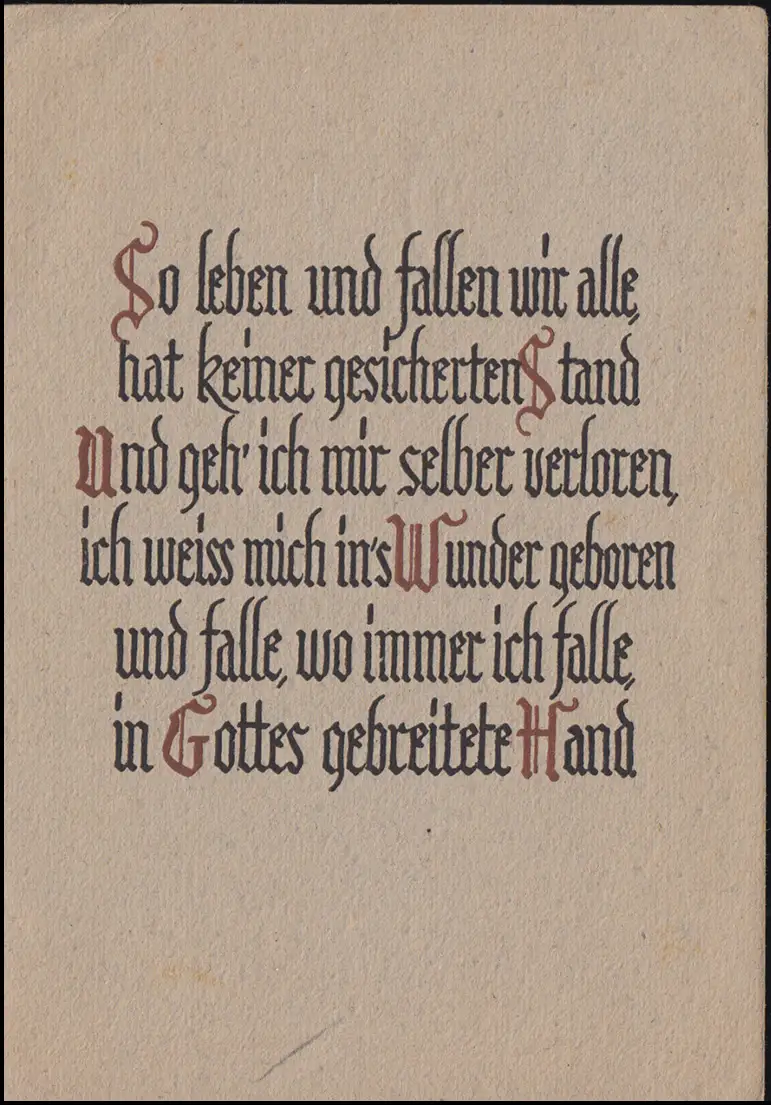 So leben und fallen wir alle,
hat keiner gesicherten Stand.
Und geh' ich mir selber verloren,
ich weiss mich in's Wunder geboren
und falle, wo immer ich falle,
in Gottes gebreitete Hand.